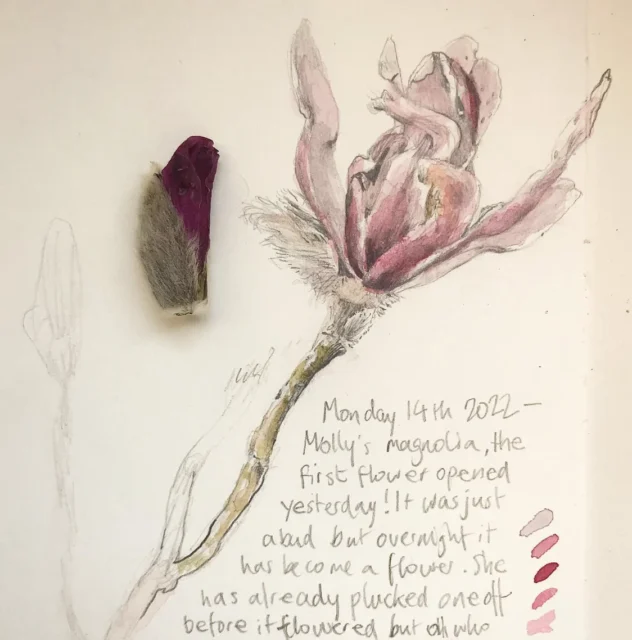 Monday 14th 2022 –
Molly's magnolia, the
first flower opened
yesterday! It was just
a bud but overnight it
has become a flower. She
has already plucked one off
before it flowered but oh who